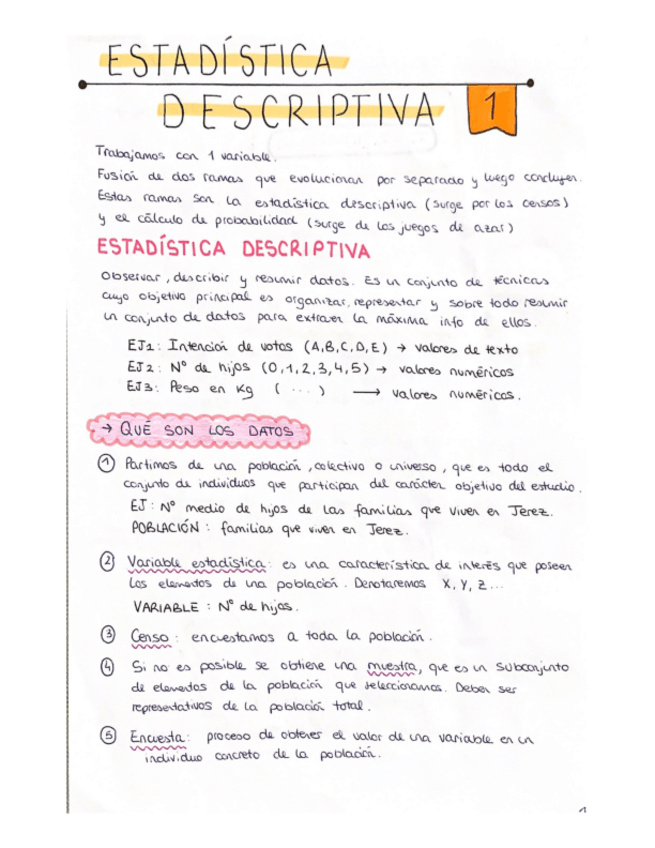 ESTADÍSTICA
DESCRIPTIVA 1
Trabajamos con 1 variable.
Fusión de dos ramas que evolucionan por separado y luego concluyen.
Estas ramas son la estadística descriptiva (surge por los censos)
y el cálculo de probabilidad (surge de los juegos de azar)
ESTADÍSTICA DESCRIPTIVA
Observar, describir y resumir datos. Es un conjunto de técnicas
cuyo objetivo principal es organizar, representar y sobre todo resumir
un conjunto de datos para extraer la máxima info de ellos.
EJ1: Intención de votos (A,B,C,D,E) → valores de texto
EJ2: Nº de hijos (0,1,2,3,4,5) → valores numéricos
EJ3: Peso en Kg ( ... ) → valores numéricos.
→ QUÉ SON LOS DATOS
① Partimos de una población, colectivo o universo, que es todo el
conjunto de individuos que participan del carácter objetivo del estudio.
EJ: Nº medio de hijos de las familias que viven en Jerez.
POBLACIÓN: familias que viven en Jerez.
② Variable estadística: es una característica de interés que poseen
los elementos de una población. Denotaremos X, Y, Z...
VARIABLE: Nº de hijos.
③ Censo: encuestamos a toda la población.
④ Si no es posible se obtiene una muestra, que es un subconjunto
de elementos de la población que seleccionamos. Deben ser
representativos de la población total.
⑤ Encuesta: proceso de obtener el valor de una variable en un
individuo concreto de la población.
1